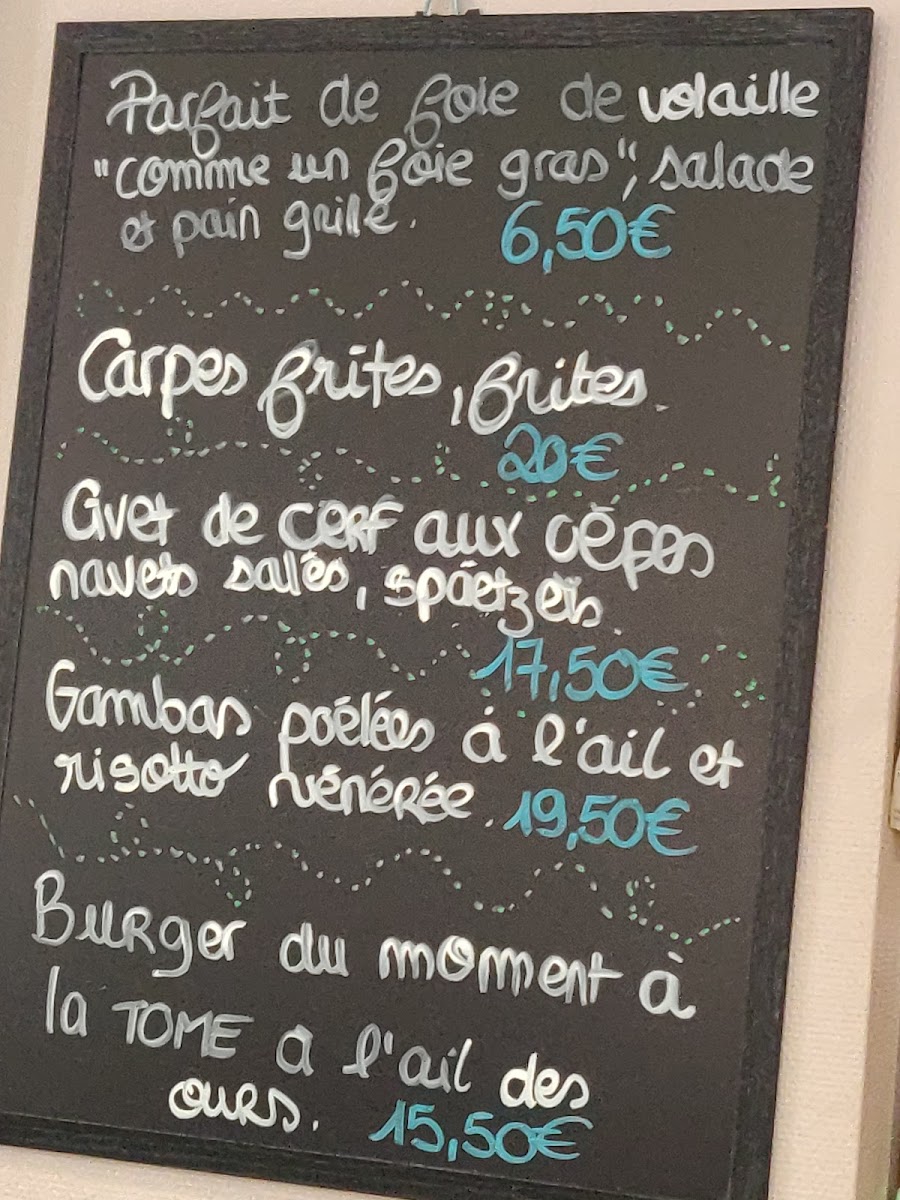 Parfait de foie de volaille
"comme un foie gras", salade
et pain grillé. 6,50€
Carpes frites, frites.
20€
Civet de CERF aux cèpes
navets salés, späetzels.
17,50€
Gambas poêlées à l'ail et
risotto vénérée. 19,50€
Burger du moment à
la TOME à l'ail des
ours. 15,50€